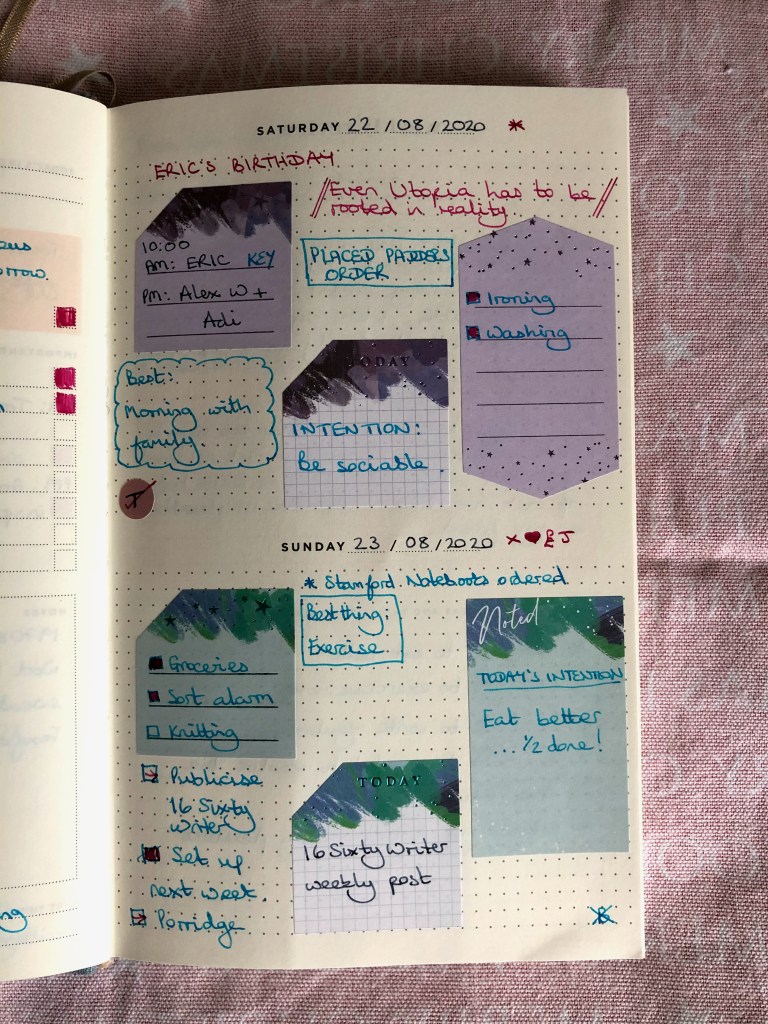 SATURDAY 22 / 08 / 2020 *
ERIC'S BIRTHDAY
//Even Utopia has to be //
rooted in reality.
10:00
AM: ERIC KEY
PM: Alex W +
Adi
PLACED
ORDER
Ironing
Washing
Best:
Morning with
family.
TODAY
INTENTION:
Be sociable.
SUNDAY 23 / 08 / 2020 x ♥ £ J
* Stamford Notebooks ordered
Groceries
Sort alarm
Knitting
Best thing:
Exercise
Noted
TODAY'S INTENTION
Eat better
... 1/2 done!
Publicise
16 Sixty
Writer
Set up
next week.
Porridge
TODAY
16 Sixty Writer
weekly post
B
orrow.
MERRY CHRISTMAS